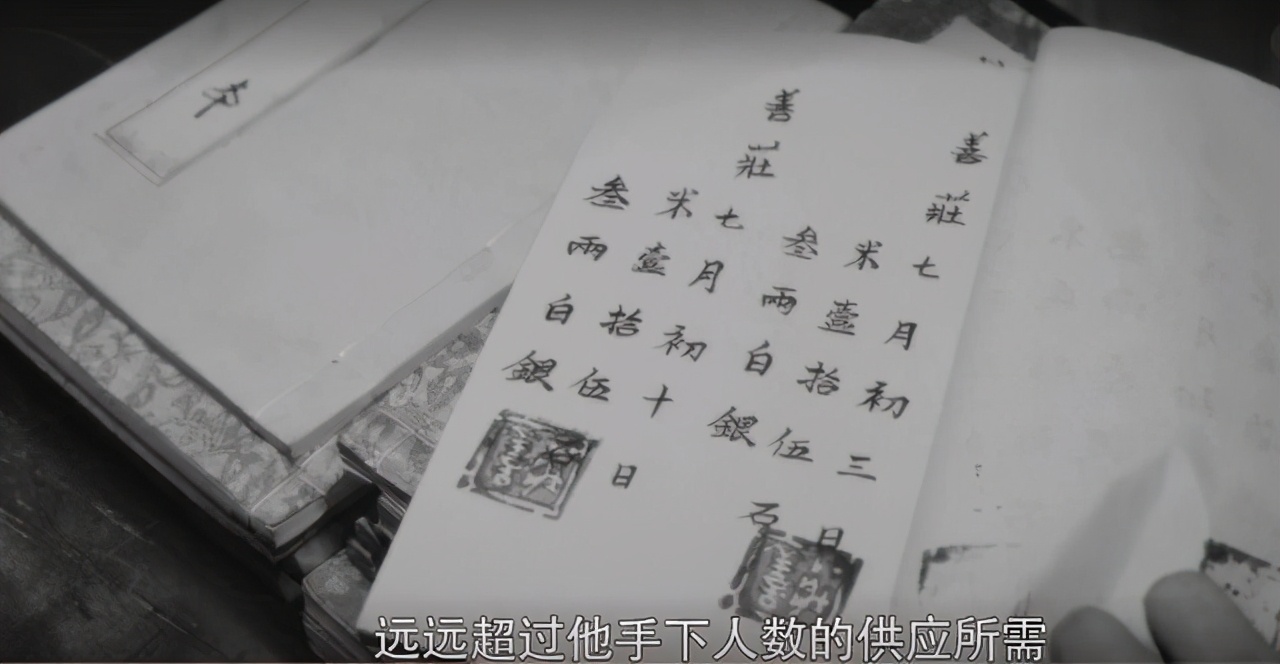 善莊七月初三日
米壹拾伍石
叁兩白銀
善莊七月初十日
米壹拾伍石
叁兩白銀
远远超过他手下人数的供应所需